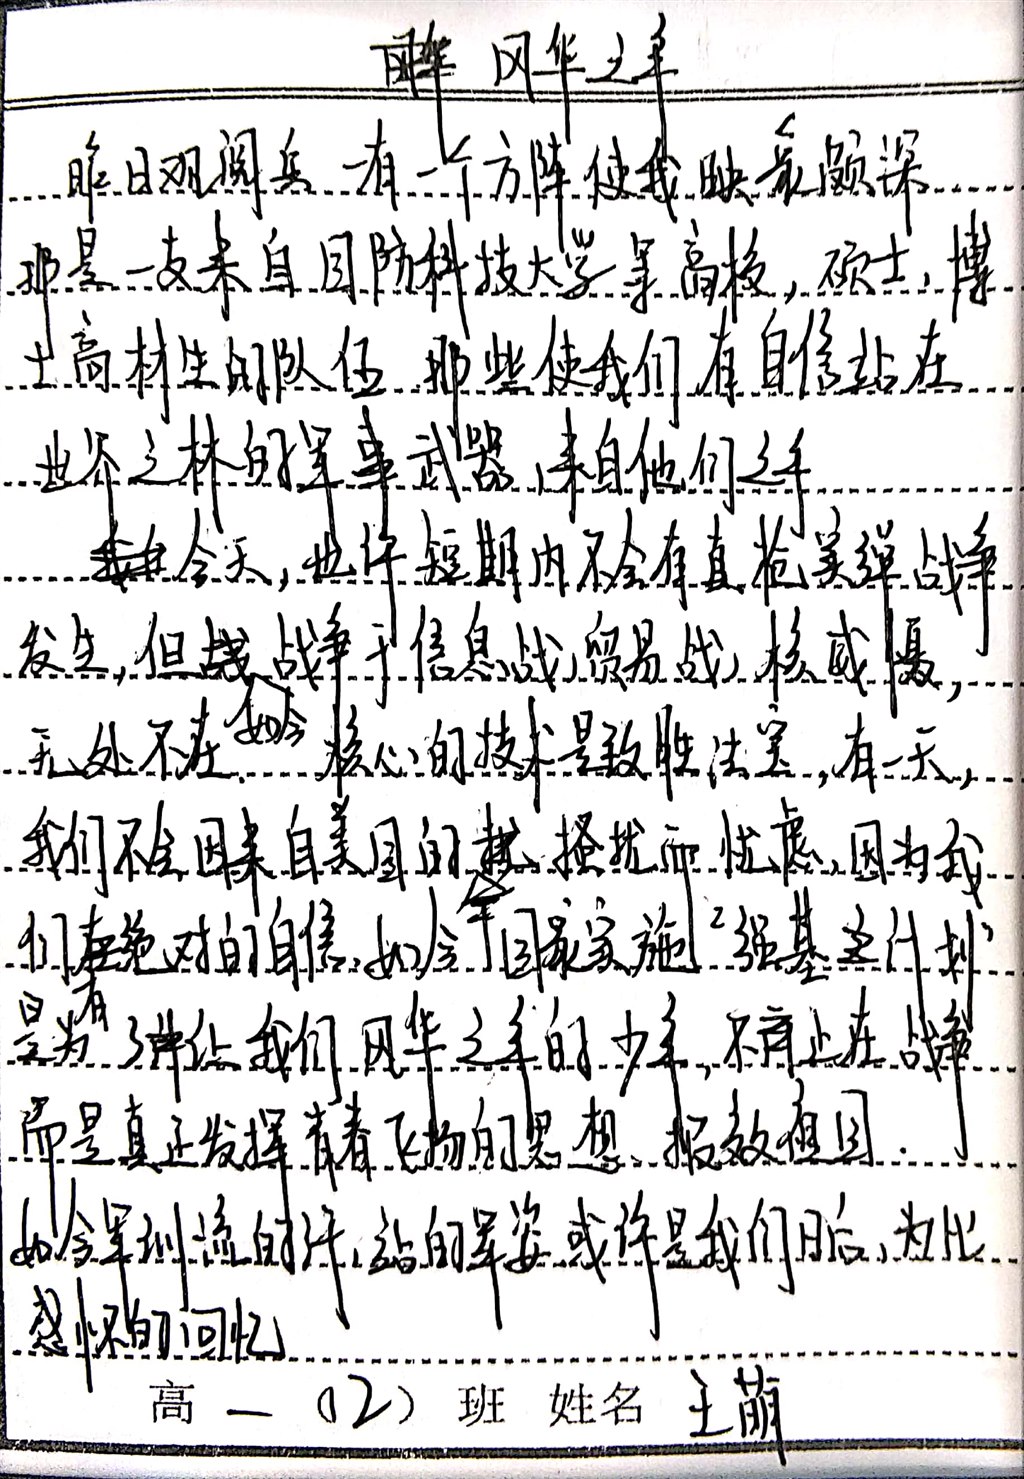 风华之年
昨日观阅兵 有一个方阵使我映象颇深
那是一支来自国防科技大学等高校,硕士,博
士高材生的队伍 那些使我们有自信站在
世界之林的军事武器,来自他们之手
今天,也许短期内不会有真枪实弹战争
发生,但战争于信息战,贸易战,核威慑,
无处不在.如今核心的技术是致胜法宝,有一天,
我们不会因来自美国的骚扰而忧虑,因为我
们有绝对的自信.如今国家实施“强基计划”
是为了让我们风华之年的少年,不育止在战争
而是真正发挥青春飞扬的思想.报效祖国.
如今军训流的汗,站的军姿或许是我们日后,为此
感怀的回忆
高一(12)班 姓名 王萌